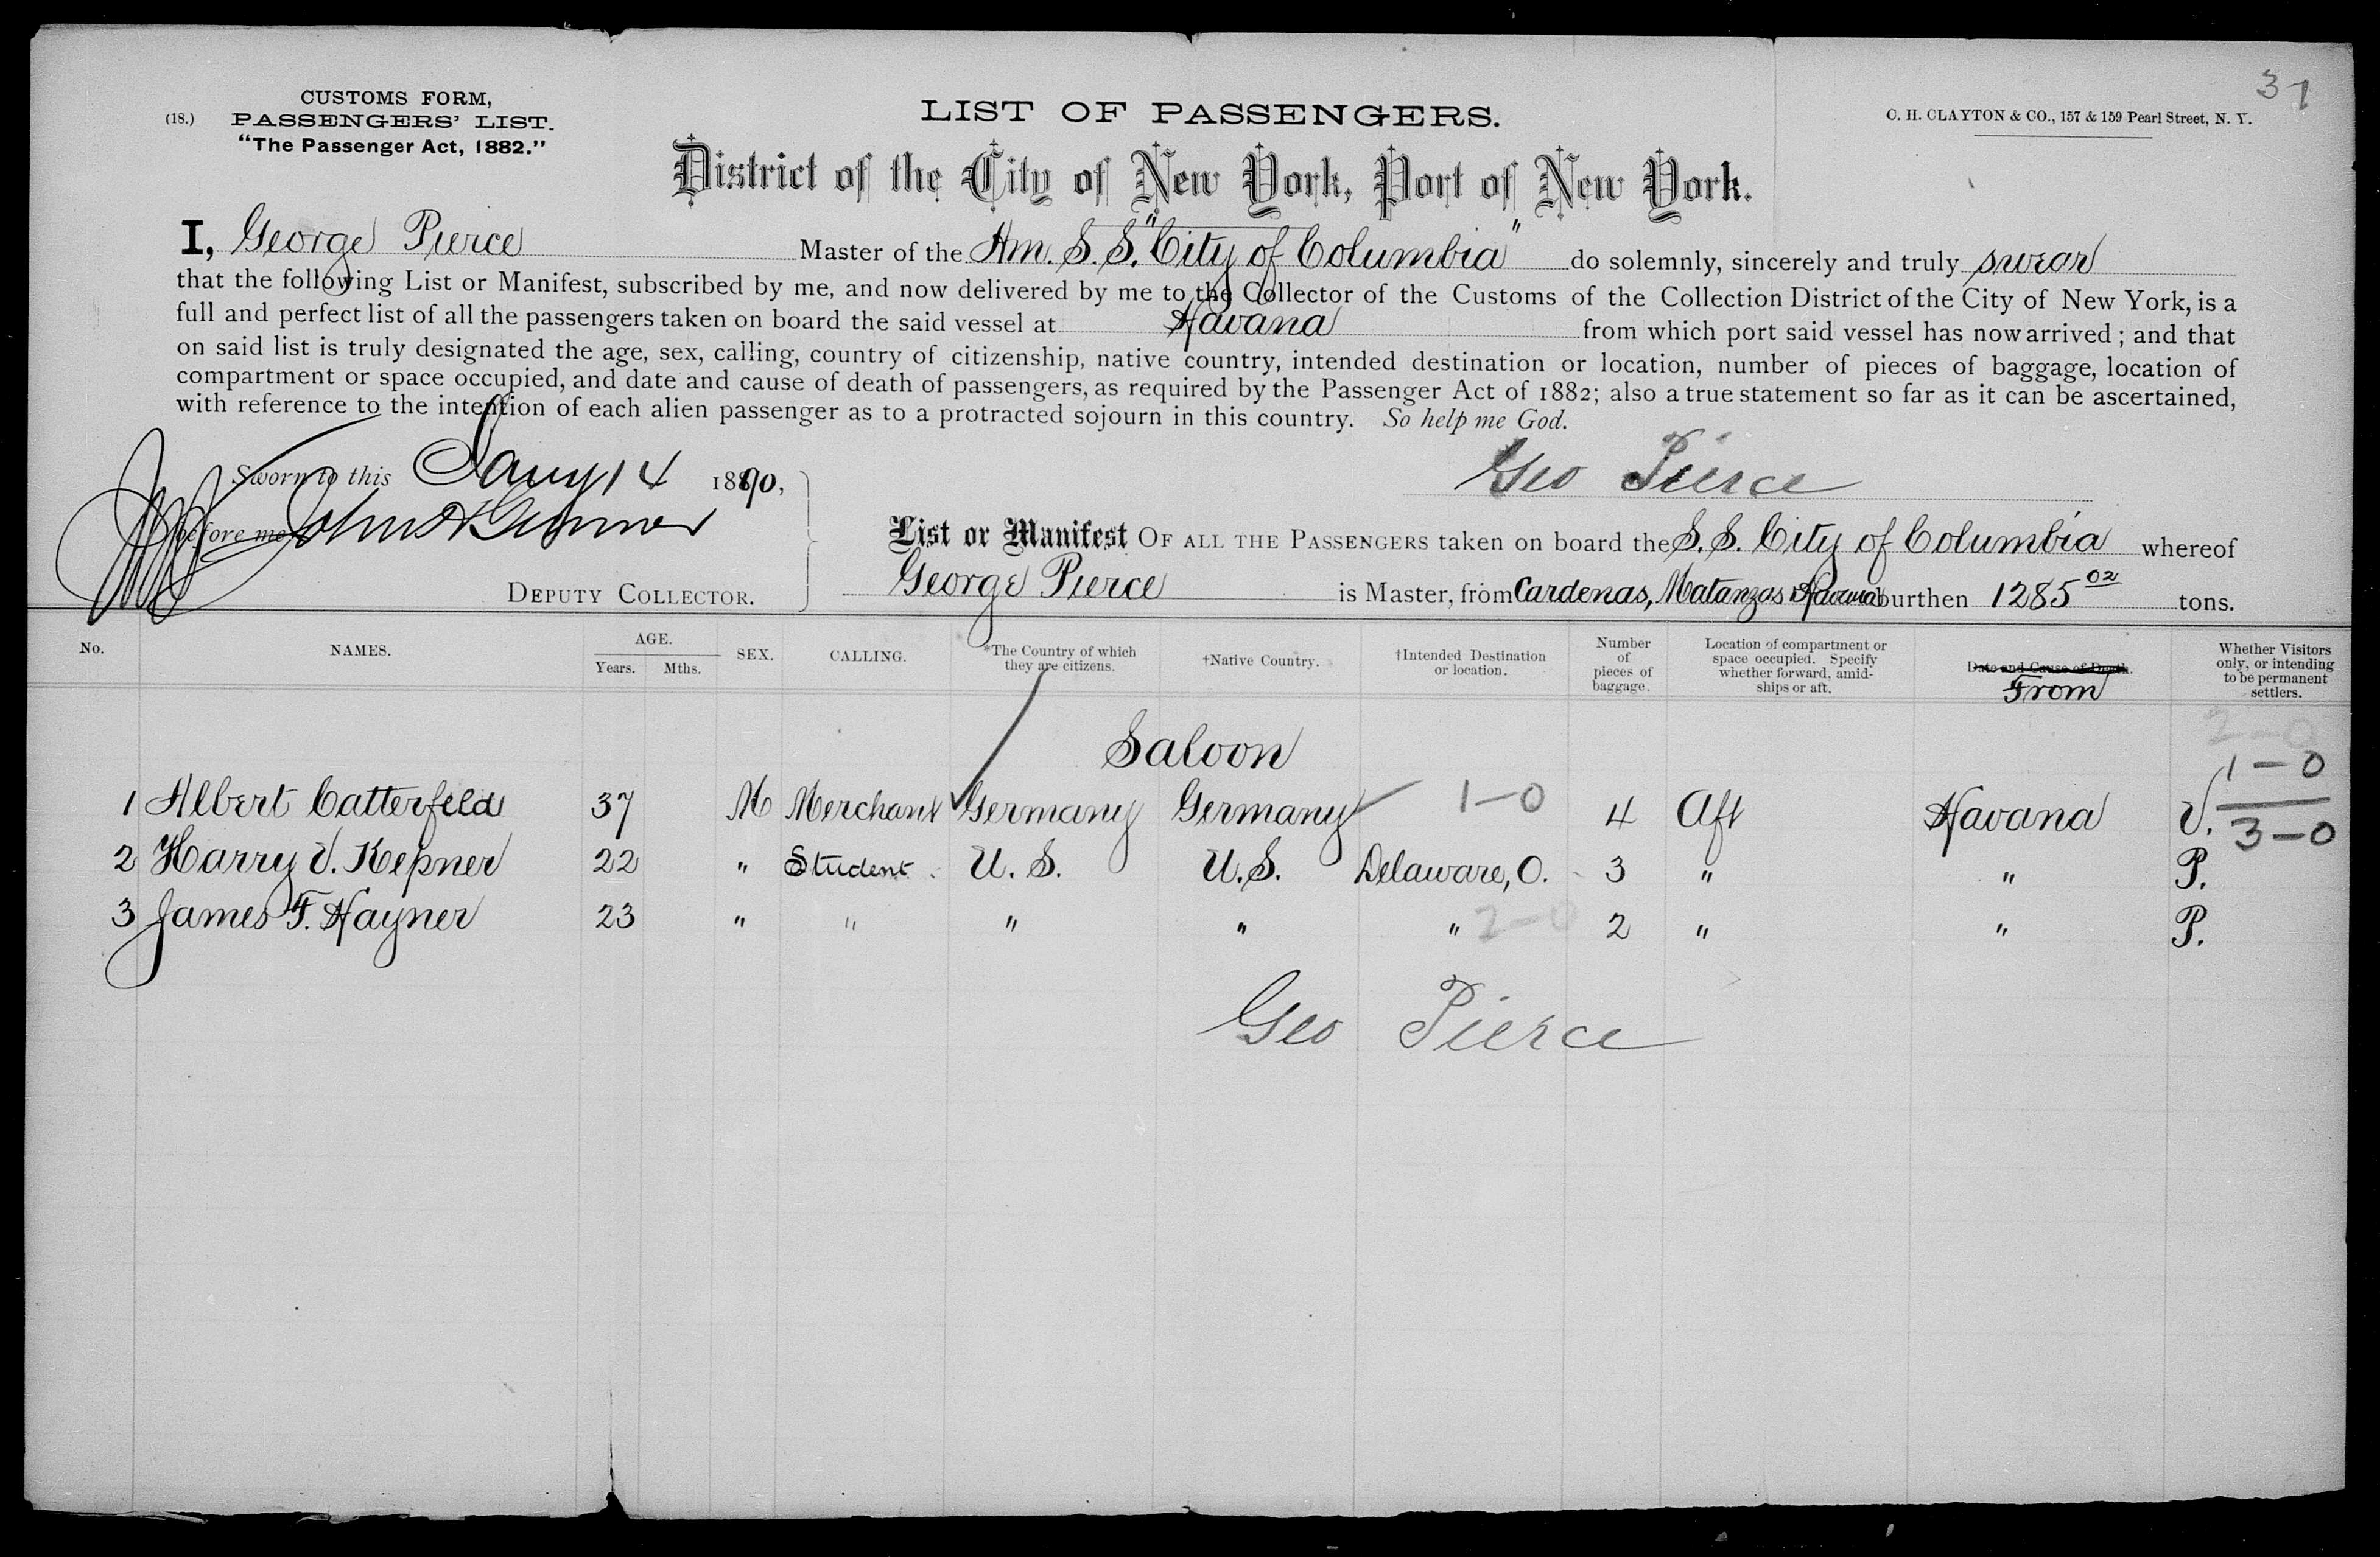 37
(18.) CUSTOMS FORM,
PASSENGERS' LIST.
"The Passenger Act, 1882."
LIST OF PASSENGERS.
C. H. CLAYTON & CO., 157 & 159 Pearl Street, N. Y.
District of the City of New York, Port of New York.
I, George Pierce Master of the Am. S. S. "City of Columbia" do solemnly, sincerely and truly swear
that the following List or Manifest, subscribed by me, and now delivered by me to the Collector of the Customs of the Collection District of the City of New York, is a
full and perfect list of all the passengers taken on board the said vessel at Havana from which port said vessel has now arrived; and that
on said list is truly designated the age, sex, calling, country of citizenship, native country, intended destination or location, number of pieces of baggage, location of
compartment or space occupied, and date and cause of death of passengers, as required by the Passenger Act of 1882; also a true statement so far as it can be ascertained,
with reference to the intention of each alien passenger as to a protracted sojourn in this country. So help me God.
Sworn to this Jany 14 1890,
Geo Pierce
before me John
DEPUTY COLLECTOR.
List or Manifest OF ALL THE PASSENGERS taken on board the S. S. City of Columbia whereof
George Pierce is Master, from Cardenas, Matanzas & Havana burthen 1285 02 tons.
No. NAMES. AGE. Years. Mths. SEX. CALLING. *The Country of which they are citizens. †Native Country. †Intended Destination or location. Number of pieces of baggage. Location of compartment or space occupied. Specify whether forward, amidships or aft. Date and Cause of Death. From Whether Visitors only, or intending to be permanent settlers.
2-0
Saloon
1-0
1 Albert Catterfeld 37 M Merchant Germany Germany 1-0 4 Aft Havana V.
3-0
2 Harry V. Kepner 22 " Student U. S. U. S. Delaware, O. 3 " " P.
3 James F. Hayner 23 " " " " " 2-0 2 " " P.
Geo Pierce